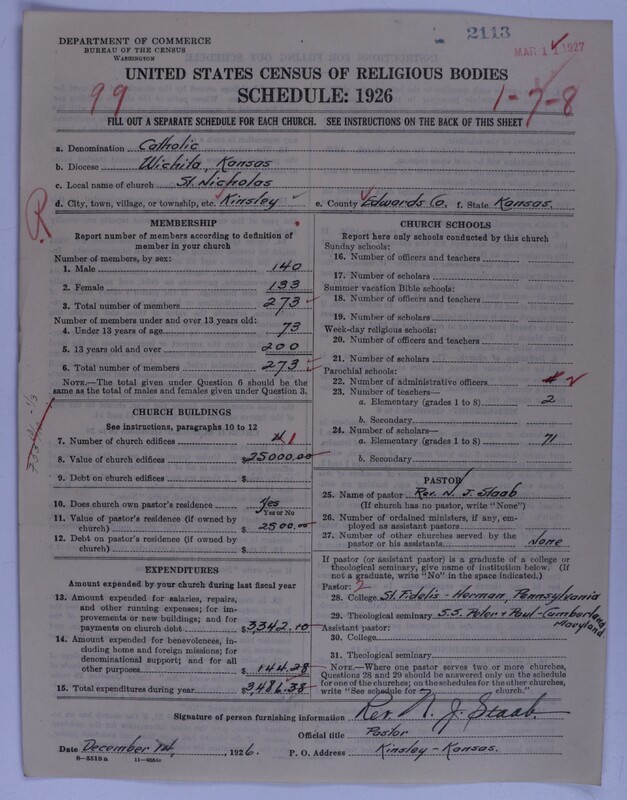 2113
MAR 11 1927
DEPARTMENT OF COMMERCE
BUREAU OF THE CENSUS
WASHINGTON
UNITED STATES CENSUS OF RELIGIOUS BODIES
SCHEDULE: 1926
99
1-7-8
FILL OUT A SEPARATE SCHEDULE FOR EACH CHURCH. SEE INSTRUCTIONS ON THE BACK OF THIS SHEET
a. Denomination Catholic
b. Diocese Wichita, Kansas
c. Local name of church St. Nicholas
d. City, town, village, or township, etc. Kinsley e. County Edwards Co. f. State Kansas.
R
MEMBERSHIP
Report number of members according to definition of member in your church
Number of members, by sex:
1. Male 140
2. Female 133
3. Total number of members 273
Number of members under and over 13 years old:
4. Under 13 years of age 73
5. 13 years old and over 200
6. Total number of members 273
NOTE.—The total given under Question 6 should be the same as the total of males and females given under Question 3.
CHURCH BUILDINGS
See instructions, paragraphs 10 to 12
7. Number of church edifices 1
8. Value of church edifices $25000.00
9. Debt on church edifices $
10. Does church own pastor's residence Yes
Yes or No
11. Value of pastor's residence (if owned by church) $2500.00
12. Debt on pastor's residence (if owned by church) $
EXPENDITURES
Amount expended by your church during last fiscal year
13. Amount expended for salaries, repairs, and other running expenses; for improvements or new buildings; and for payments on church debt $3,342.10
14. Amount expended for benevolences, including home and foreign missions; for denominational support; and for all other purposes $144.28
15. Total expenditures during year $3486.38
CHURCH SCHOOLS
Report here only schools conducted by this church
Sunday schools:
16. Number of officers and teachers
17. Number of scholars
Summer vacation Bible schools:
18. Number of officers and teachers
19. Number of scholars
Week-day religious schools:
20. Number of officers and teachers
21. Number of scholars
Parochial schools:
22. Number of administrative officers
23. Number of teachers—
a. Elementary (grades 1 to 8) 2
b. Secondary
24. Number of scholars—
a. Elementary (grades 1 to 8) 71
b. Secondary
PASTOR
25. Name of pastor Rev. N. J. Staab
(If church has no pastor, write "None")
26. Number of ordained ministers, if any, employed as assistant pastors
27. Number of other churches served by the pastor or his assistants None
If pastor (or assistant pastor) is a graduate of a college or theological seminary, give name of institution below. (If not a graduate, write "No" in the space indicated.)
Pastor: 2
28. College St. Fidelis - Herman, Pennsylvania
29. Theological seminary S.S. Peter & Paul - Cumberland, Maryland
Assistant pastor:
30. College
31. Theological seminary
NOTE.—Where one pastor serves two or more churches, Questions 28 and 29 should be answered only on the schedule for one of the churches; on the schedules for the other churches, write "See schedule for church."
Signature of person furnishing information Rev. N. J. Staab.
Official title Pastor
Date December 14, 1926. P. O. Address Kinsley - Kansas.